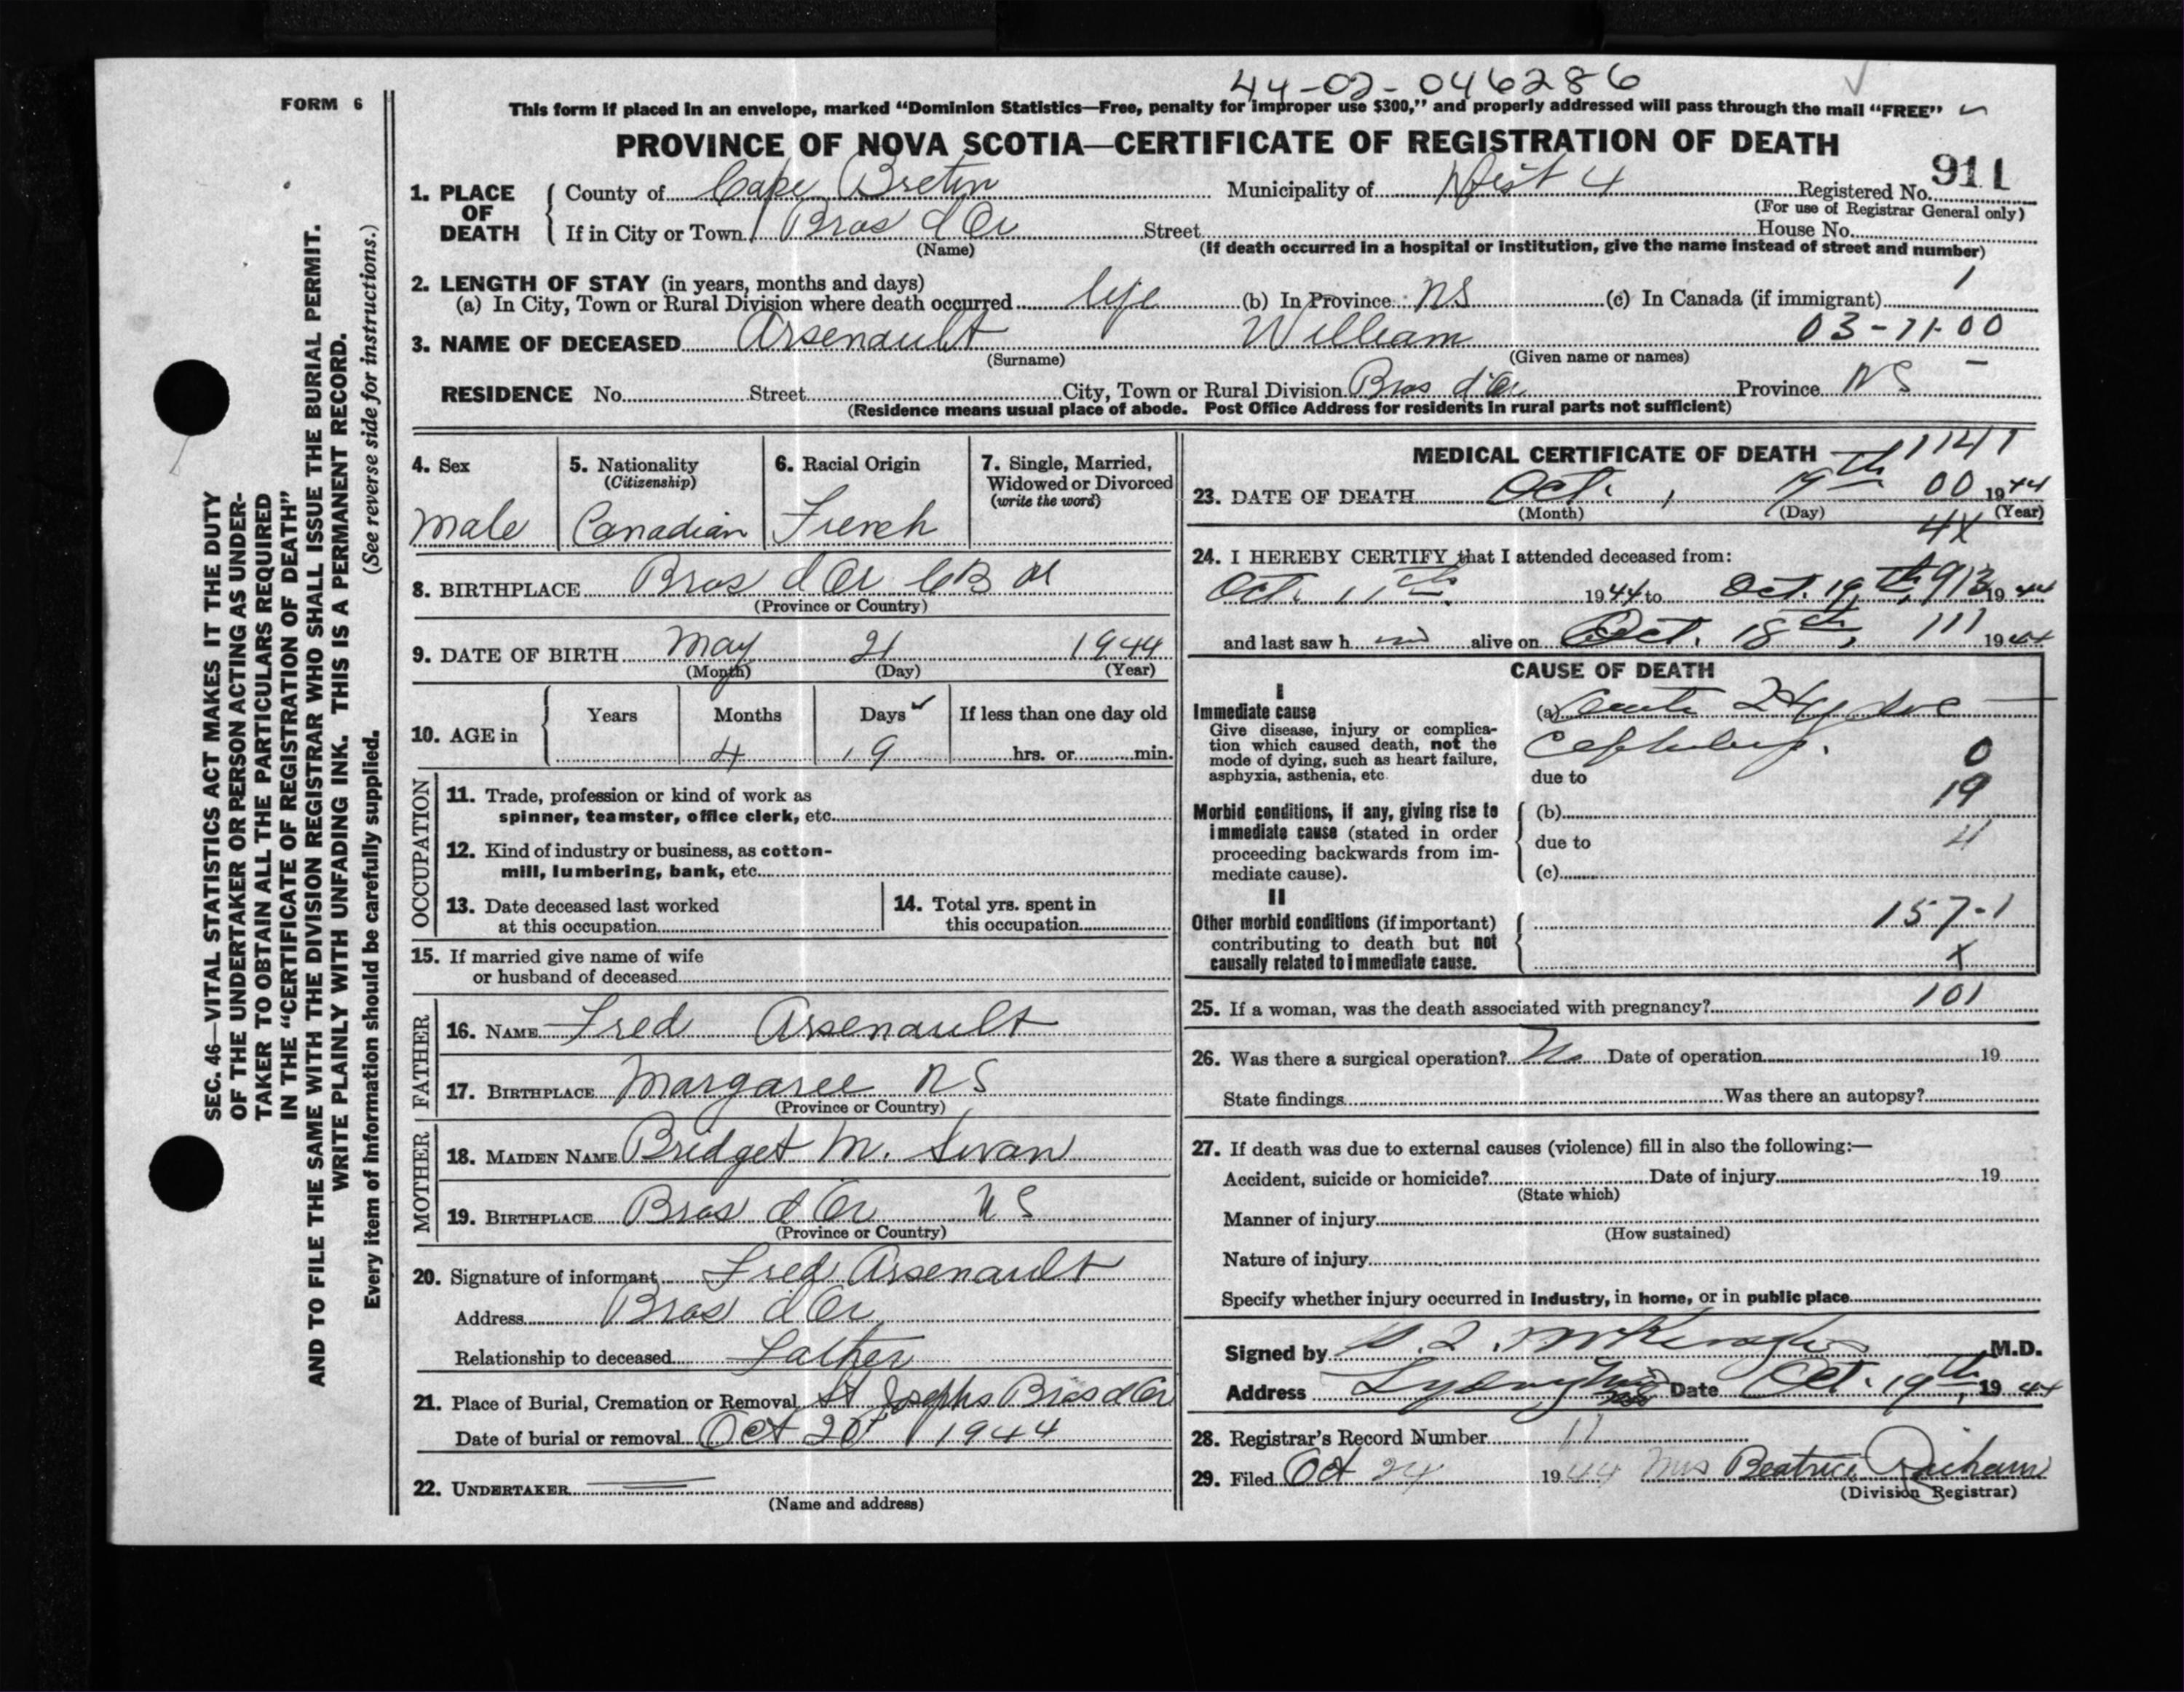 44-02-046286
FORM 6
This form if placed in an envelope, marked "Dominion Statistics—Free, penalty for improper use $300," and properly addressed will pass through the mail "FREE"
PROVINCE OF NOVA SCOTIA—CERTIFICATE OF REGISTRATION OF DEATH
911
1. PLACE OF DEATH County of Cape Breton Municipality of Dist 4 Registered No.
(For use of Registrar General only)
If in City or Town Bras d'Or Street House No.
(Name) (If death occurred in a hospital or institution, give the name instead of street and number)
2. LENGTH OF STAY (in years, months and days) 1
(a) In City, Town or Rural Division where death occurred life (b) In Province NS (c) In Canada (if immigrant)
3. NAME OF DECEASED Arsenault William 03-71-00
(Surname) (Given name or names)
RESIDENCE No. Street City, Town or Rural Division Bras d'Or Province NS
(Residence means usual place of abode. Post Office Address for residents in rural parts not sufficient)
4. Sex 5. Nationality (Citizenship) 6. Racial Origin 7. Single, Married, Widowed or Divorced (write the word)
Male Canadian French
8. BIRTHPLACE Bras d Or CB
(Province or Country)
9. DATE OF BIRTH May 21 1944
(Month) (Day) (Year)
10. AGE in Years Months Days If less than one day old
4 19 hrs. or min.
OCCUPATION
11. Trade, profession or kind of work as
spinner, teamster, office clerk, etc.
12. Kind of industry or business, as cotton-
mill, lumbering, bank, etc.
13. Date deceased last worked
at this occupation
14. Total yrs. spent in
this occupation
15. If married give name of wife
or husband of deceased
FATHER
16. NAME Fred Arsenault
17. BIRTHPLACE Margaree NS
(Province or Country)
MOTHER
18. MAIDEN NAME Bridget M.
19. BIRTHPLACE Bras d Or NS
(Province or Country)
20. Signature of informant Fred Arsenault
Address Bras d Or
Relationship to deceased Father
21. Place of Burial, Cremation or Removal St Josephs Bras d Or
Date of burial or removal Oct 20 1944
22. UNDERTAKER
(Name and address)
MEDICAL CERTIFICATE OF DEATH 1141
23. DATE OF DEATH Oct. 19th 00 1944
(Month) (Day) (Year)
4X
24. I HEREBY CERTIFY that I attended deceased from:
Oct. 11th 1944 to Oct. 19th, 913 1944
and last saw h im alive on Oct. 18th, 111 1944
CAUSE OF DEATH
I
Immediate cause
Give disease, injury or complica-
tion which caused death, not the
mode of dying, such as heart failure,
asphyxia, asthenia, etc.
(a) Acute
0
due to
19
Morbid conditions, if any, giving rise to
immediate cause (stated in order
proceeding backwards from im-
mediate cause).
(b)
due to 4
(c)
II
Other morbid conditions (if important)
contributing to death but not
causally related to immediate cause.
157-1
X
25. If a woman, was the death associated with pregnancy? 101
26. Was there a surgical operation? No Date of operation 19
State findings Was there an autopsy?
27. If death was due to external causes (violence) fill in also the following:—
Accident, suicide or homicide? Date of injury 19
(State which)
Manner of injury
(How sustained)
Nature of injury
Specify whether injury occurred in industry, in home, or in public place
Signed by M.D.
Address Date Oct. 19th, 1944
28. Registrar's Record Number 11
29. Filed Oct 24 1944 Mrs Beatrice
(Division Registrar)
SEC. 46—VITAL STATISTICS ACT MAKES IT THE DUTY
OF THE UNDERTAKER OR PERSON ACTING AS UNDER-
TAKER TO OBTAIN ALL THE PARTICULARS REQUIRED
IN THE "CERTIFICATE OF REGISTRATION OF DEATH"
AND TO FILE THE SAME WITH THE DIVISION REGISTRAR WHO SHALL ISSUE THE BURIAL PERMIT.
WRITE PLAINLY WITH UNFADING INK. THIS IS A PERMANENT RECORD.
Every item of information should be carefully supplied. (See reverse side for instructions.)